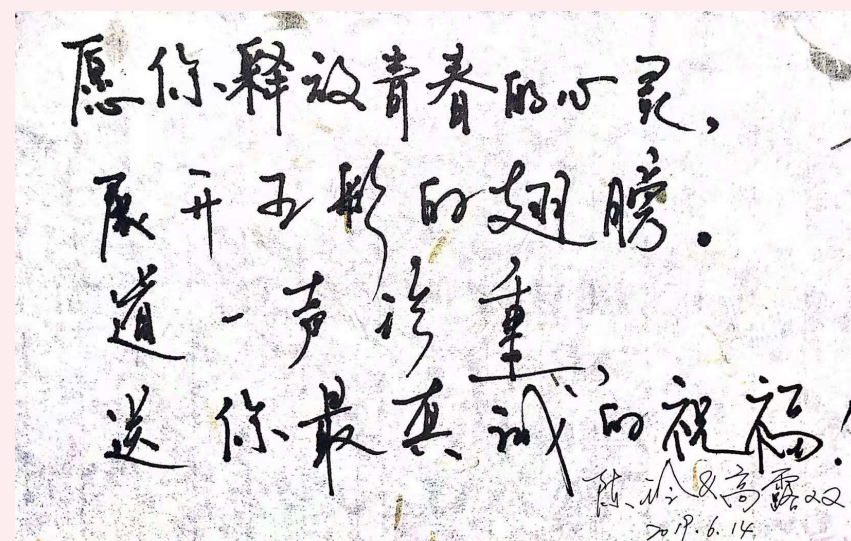 愿你释放青春的心灵,
展开五彩的翅膀.
道一声珍重,
送你最真诚的祝福!
陈玲&高露双
2019.6.14